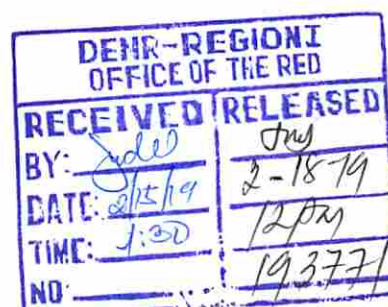 DENR-REGION I
OFFICE OF THE RED
RECEIVED RELEASED
BY:
DATE: 2/15/19 2-18-19
TIME: 1:30 12pm
NO: 193771